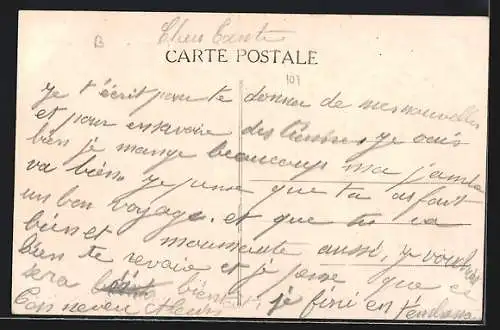 B
Chère Tante
CARTE POSTALE
107
Je t'écrit pour te donner de mes nouvelles
et pour en savoir des tiennes, je vais
bien je mange beaucoup ma jambe
va bien. je pense que tu as fait
un bon voyage. et que tu va
bien et aussi, je voudrais
bien te revoir et je pense que ce
sera bientôt, je fini en t'embrassant
Ton neveu